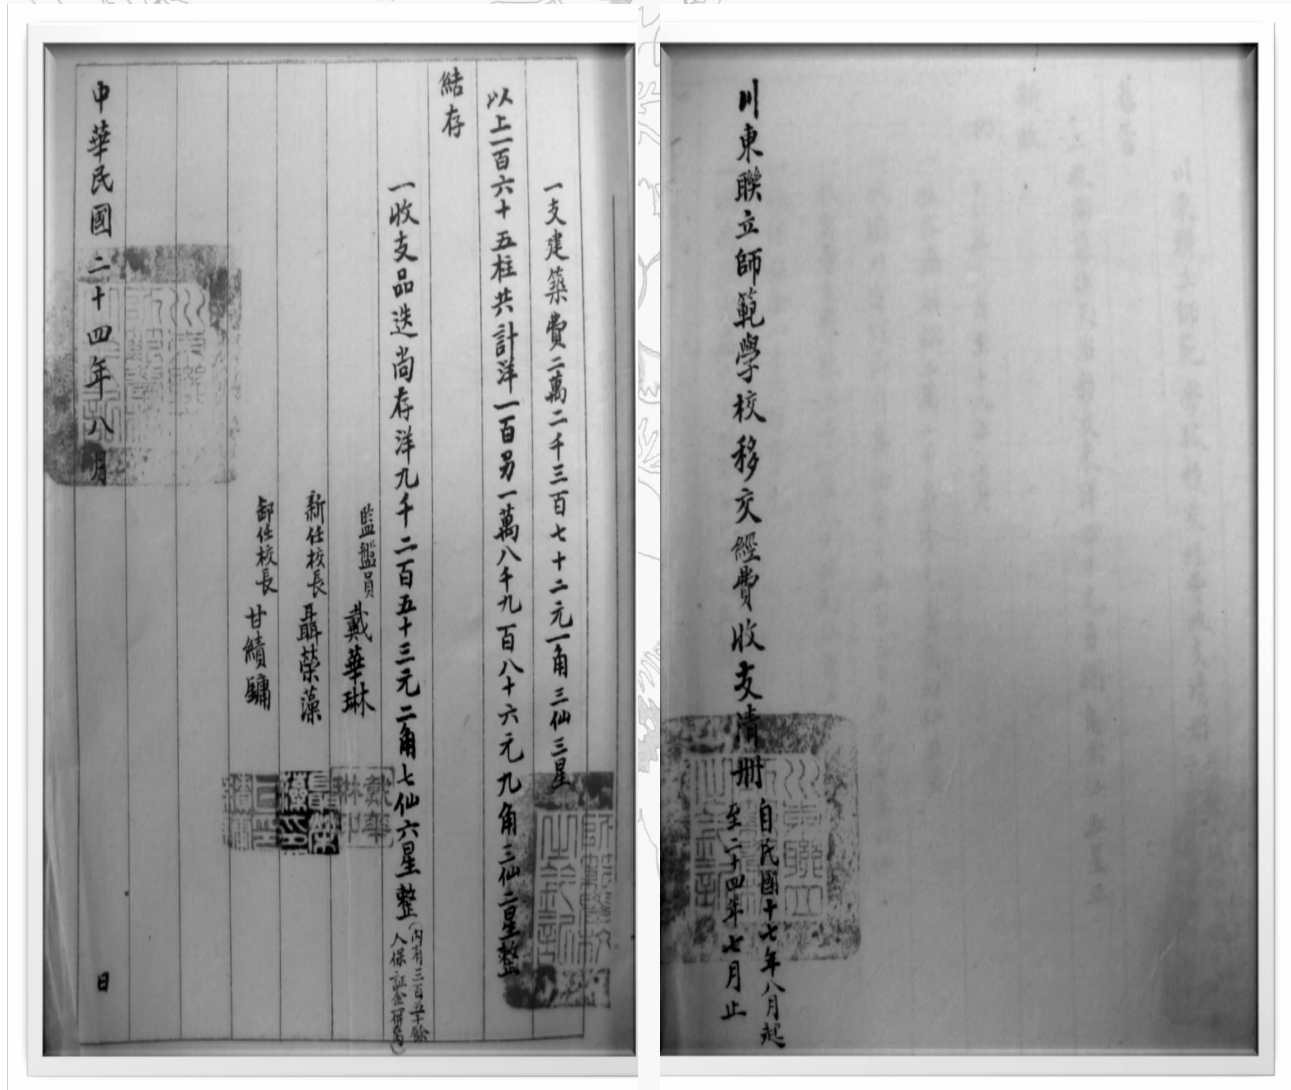 川東聯立師範學校移交經費收支清册
自民國十七年八月起
至二十四年七月止
一支建築費二萬二千三百七十二元一角三仙三星
以上一百六十五柱共計洋一百另一萬八千九百八十六元九角三仙二星整
結存
一收支品迭尚存洋九千二百五十三元二角七仙六星整
(內有三百五十餘
人保証金併入)
監盤員 戴華琳
新任校長 聶榮藻
卸任校長 甘績鏞
中華民國二十四年八月 日